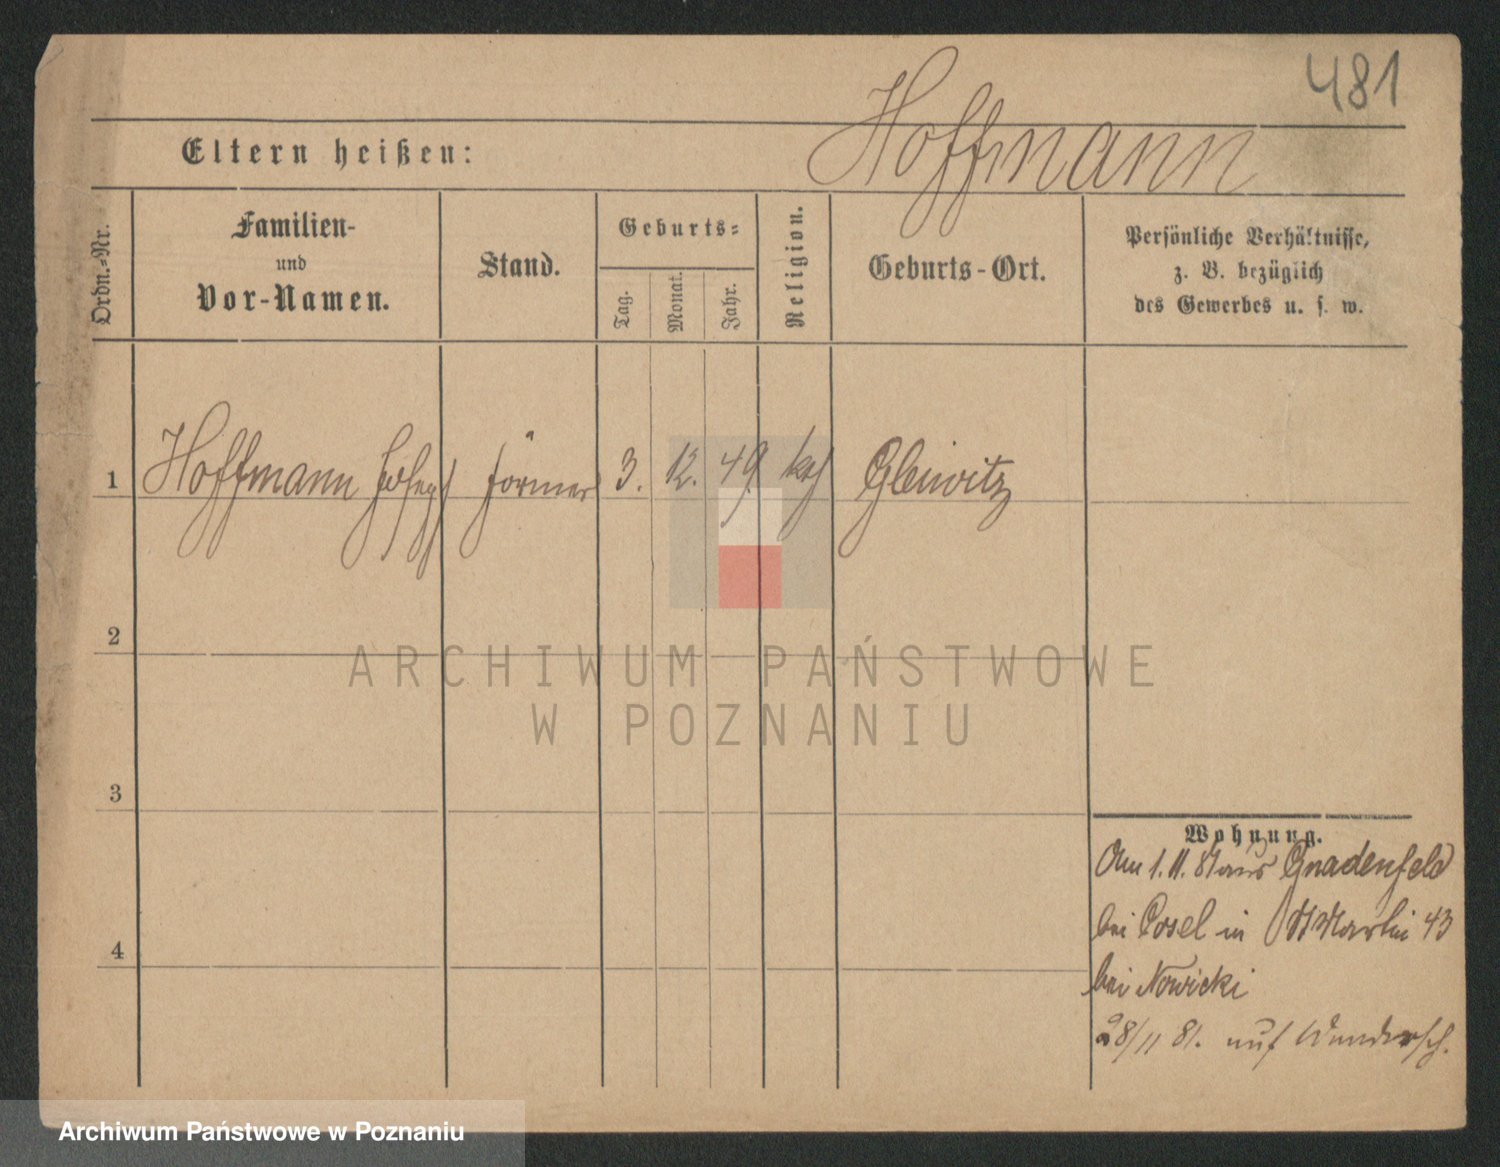 481
Hoffmann
Eltern heißen:
Ordn.-Nr.
Familien-
und
Vor-Namen.
Stand.
Geburts-
Tag.
Monat.
Jahr.
Religion.
Geburts-Ort.
Persönliche Verhältnisse,
z. B. bezüglich
des Gewerbes u. s. w.
1 Hoffmann Josef Förmer 3. 12. 49 kath Gleiwitz
2
ARCHIWUM PAŃSTWOWE
W POZNANIU
3
Wohnung.
Am 1. 11. 81 aus Gnadenfeld
bei Cosel in St Martin 43
4
bei Nowicki
28/11 81. auf Wandersch.
Archiwum Państwowe w Poznaniu